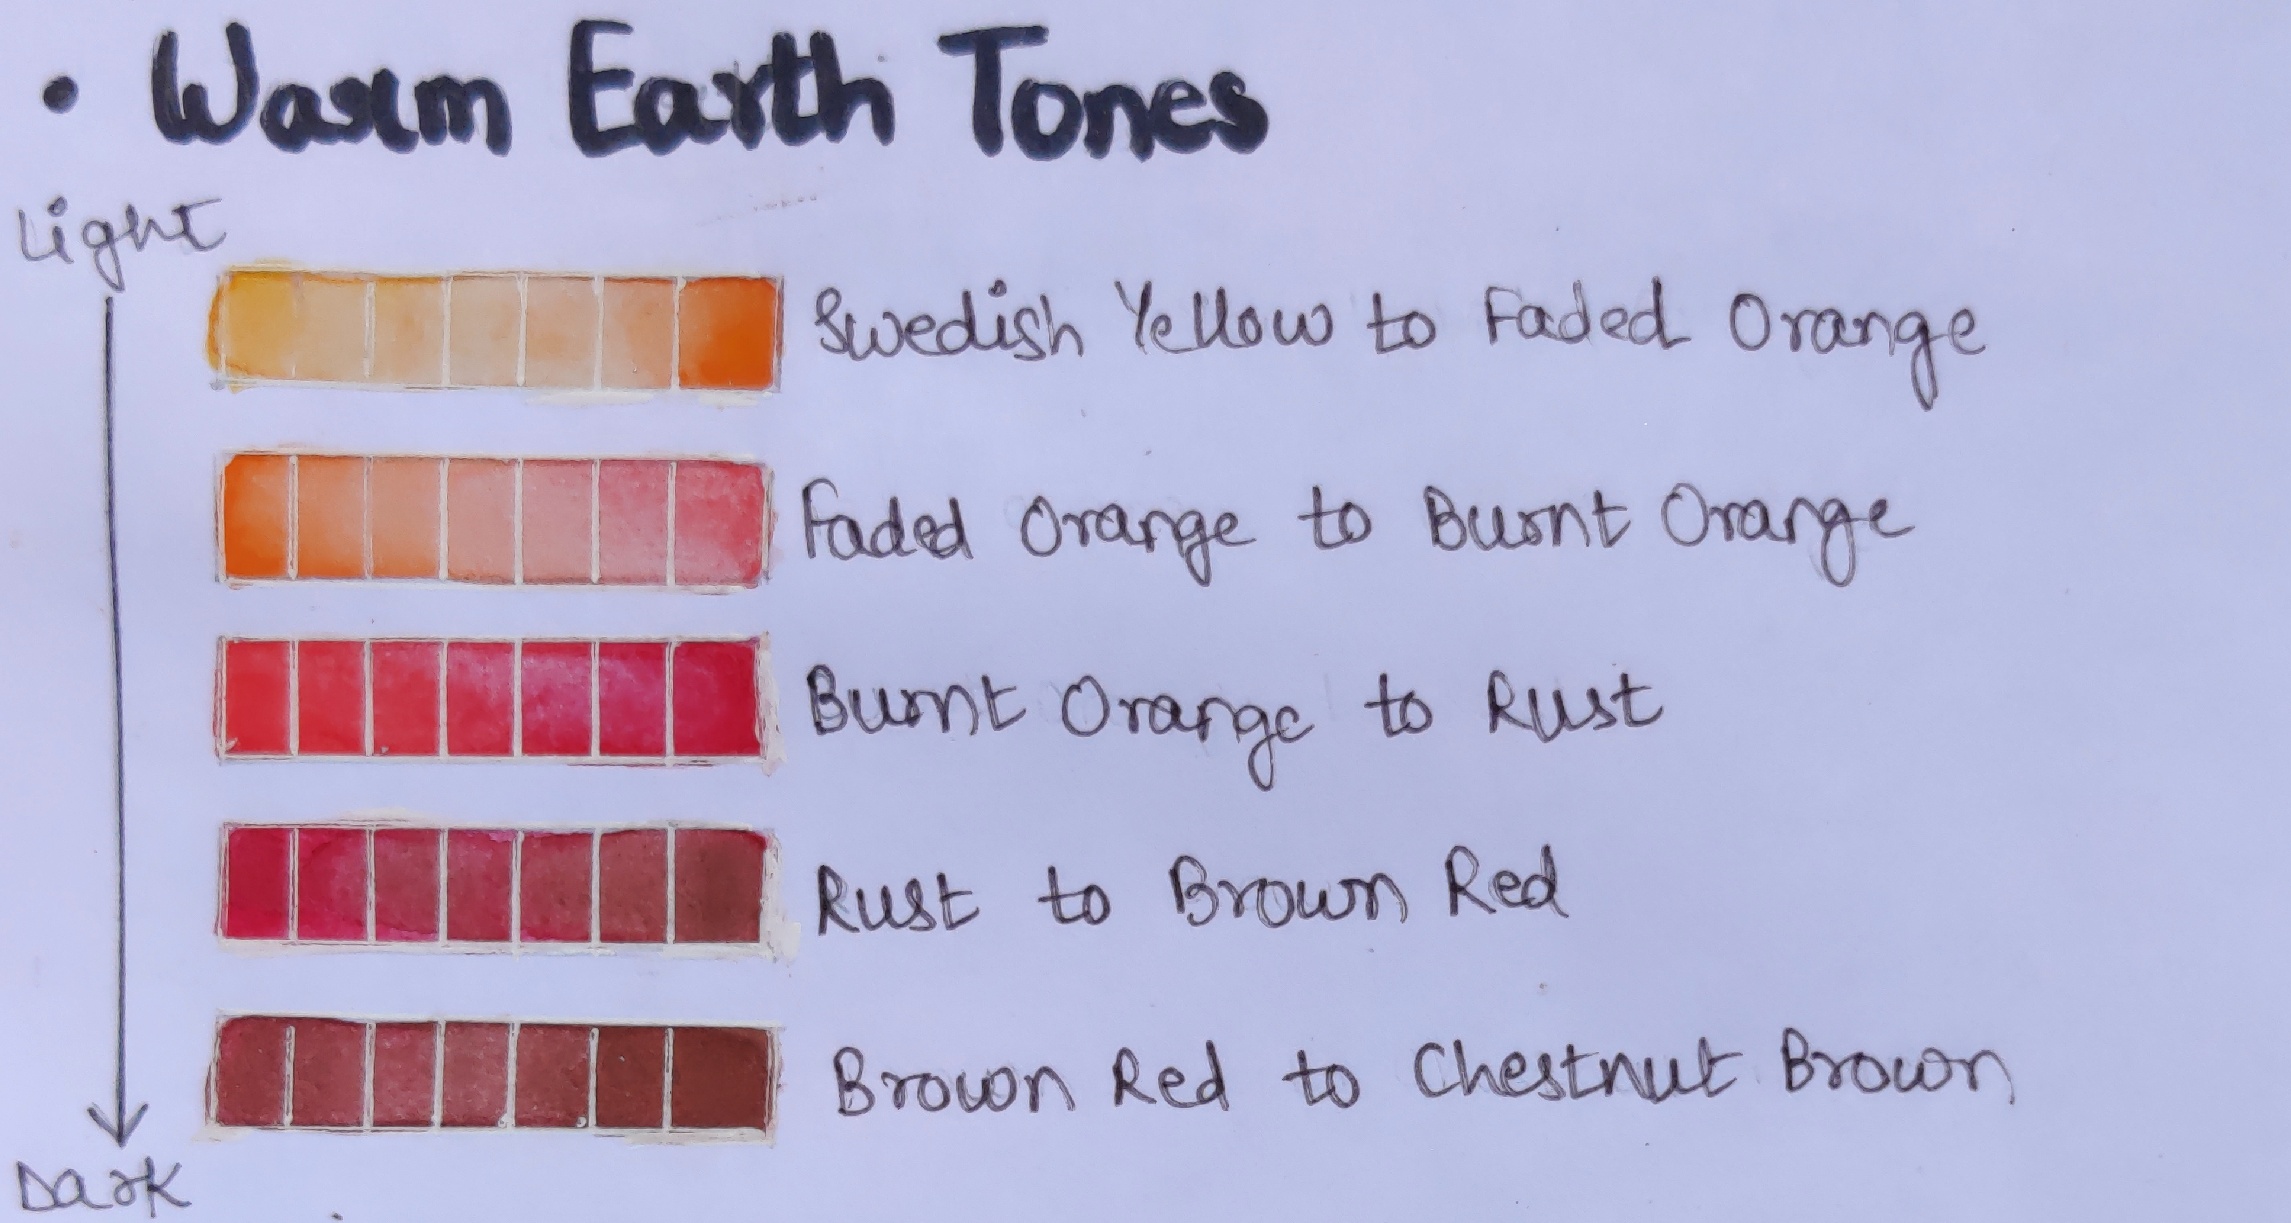 • Warm Earth Tones
Light
Swedish Yellow to Faded Orange
Faded Orange to Burnt Orange
Burnt Orange to Rust
Rust to Brown Red
Brown Red to Chestnut Brown
Dark